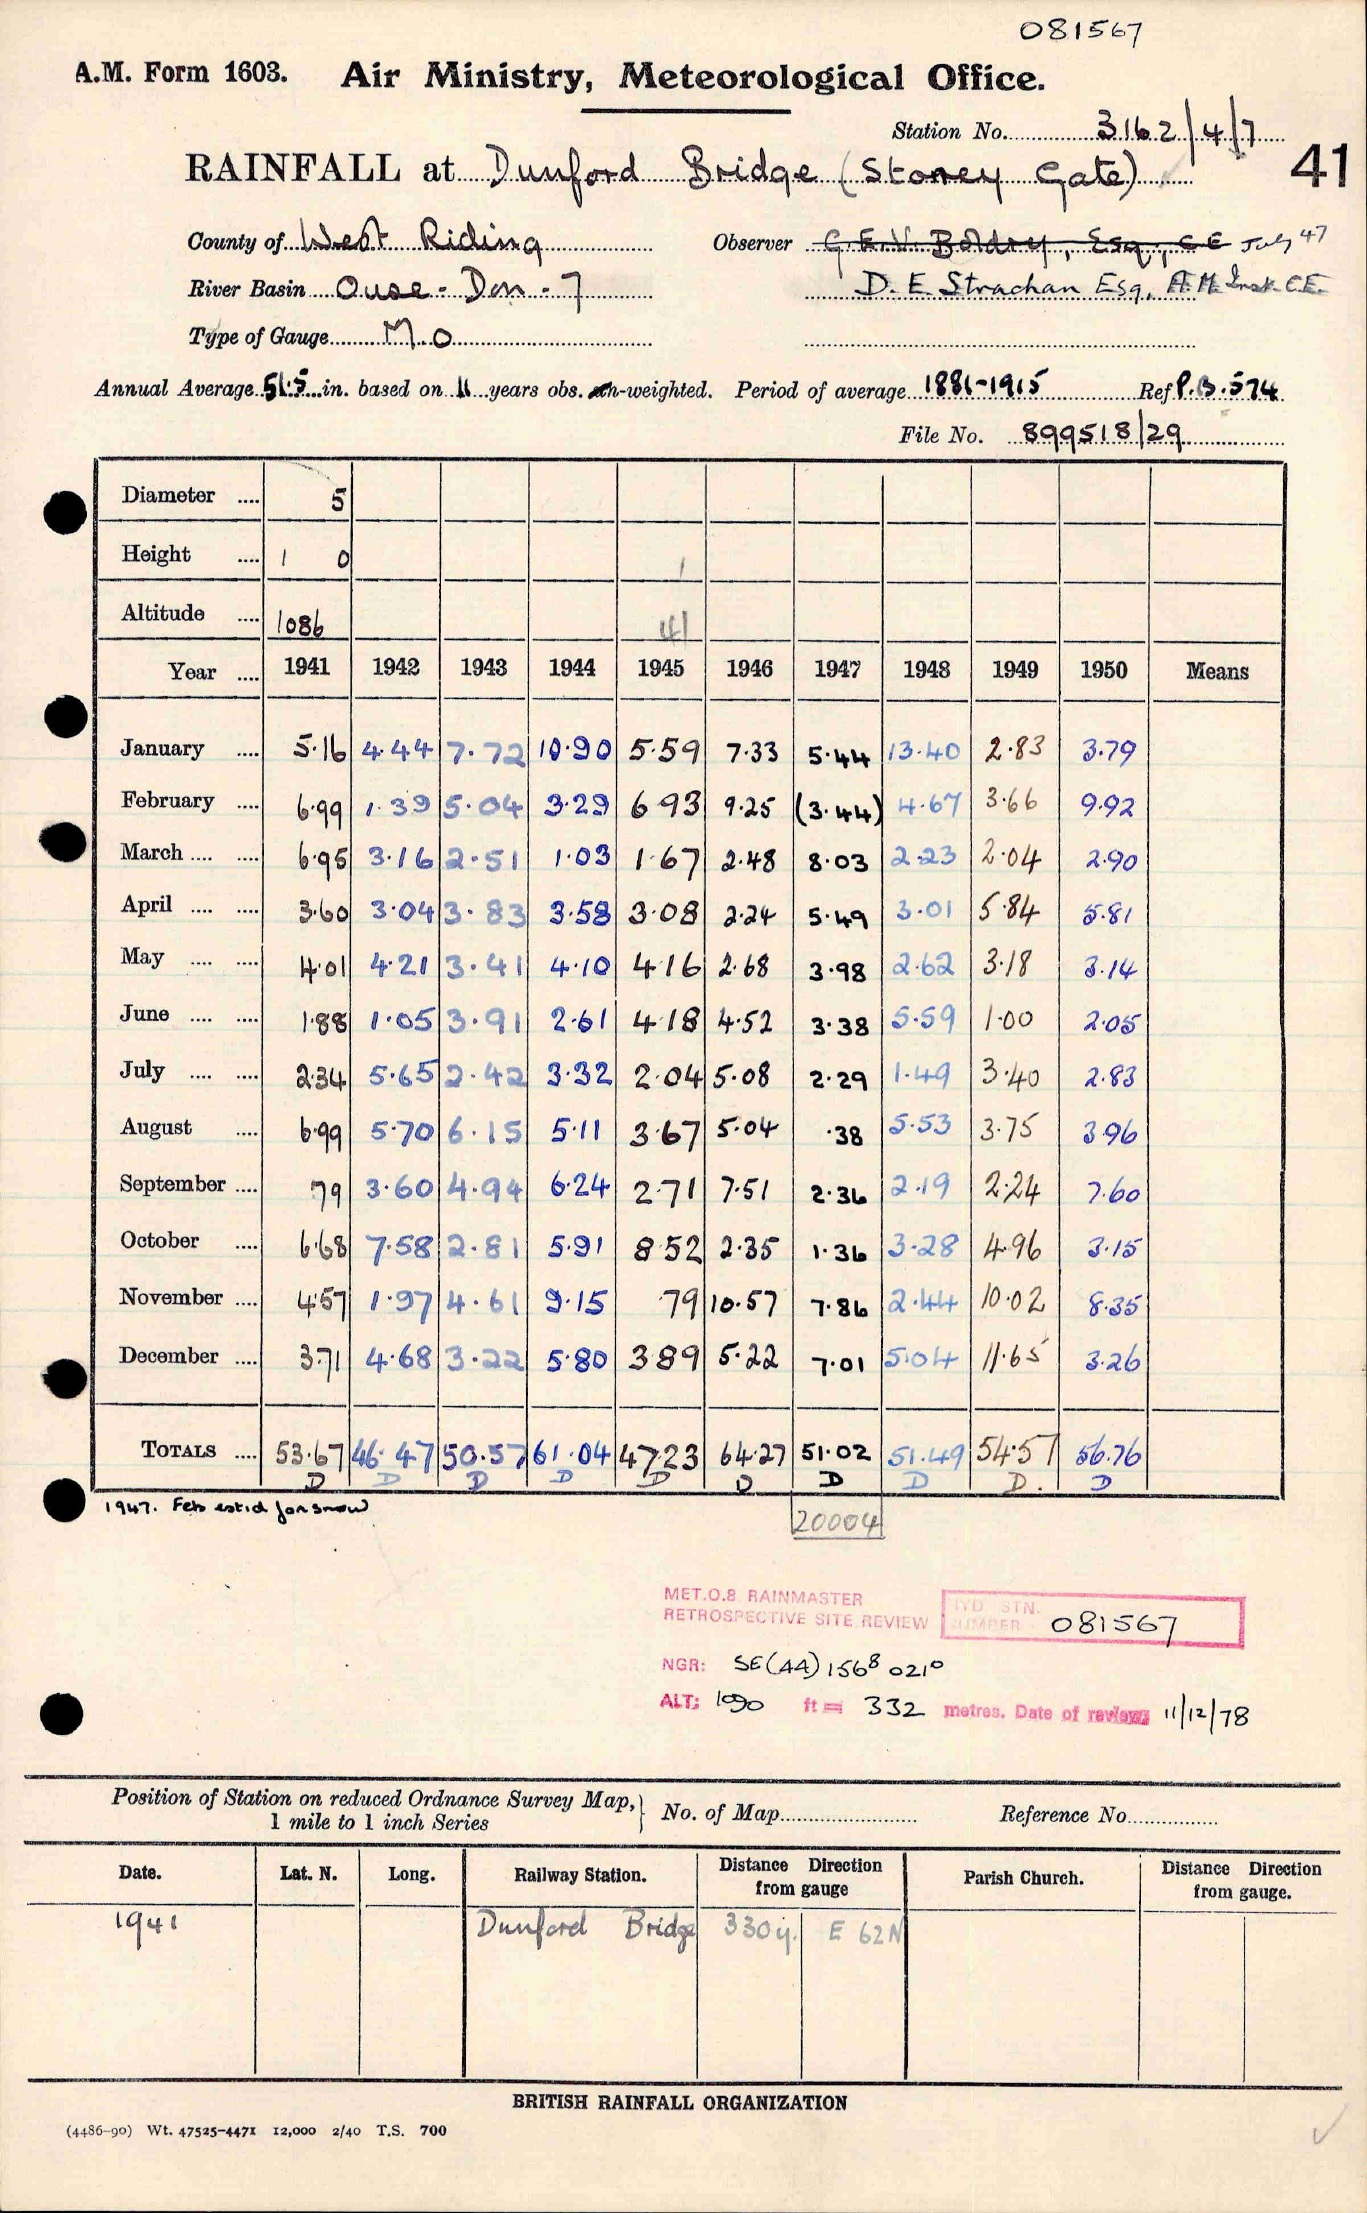 081567
A.M. Form 1603. Air Ministry, Meteorological Office.
Station No. 3162/4/7
41
RAINFALL at Dunford Bridge (Stoney Gate)
County of West Riding Observer G.E.V. Boldry, Esq., C E July 47
River Basin Ouse - Don - 7 D. E. Strachan Esq, A.M. Inst. C.E.
Type of Gauge M.O
Annual Average 51.5 in. based on 11 years obs. -weighted. Period of average 1881-1915 Ref P.B. 574
File No. 899518/29
Diameter .... 5
Height .... 1 0
Altitude .... 1086 41
Year .... 1941 1942 1943 1944 1945 1946 1947 1948 1949 1950 Means
January .... 5.16 4.44 7.72 10.90 5.59 7.33 5.44 13.40 2.83 3.79
February .... 6.99 1.39 5.04 3.29 6 93 9.25 (3.44) 4.67 3.66 9.92
March .... .... 6.95 3.16 2.51 1.03 1.67 2.48 8.03 2.23 2.04 2.90
April .... .... 3.60 3.04 3.83 3.58 3.08 2.24 5.49 3.01 5.84 5.81
May .... .... 4.01 4.21 3.41 4.10 4 16 2.68 3.98 2.62 3.18 3.14
June .... .... 1.88 1.05 3.91 2.61 4 18 4.52 3.38 5.59 1.00 2.05
July .... .... 2.34 5.65 2.42 3.32 2.04 5.08 2.29 1.49 3.40 2.83
August .... 6.99 5.70 6.15 5.11 3.67 5.04 .38 5.53 3.75 3.96
September .... 79 3.60 4.94 6.24 2.71 7.51 2.36 2.19 2.24 7.60
October .... 6.68 7.58 2.81 5.91 8.52 2.35 1.36 3.28 4.96 3.15
November .... 4.57 1.97 4.61 9.15 79 10.57 7.86 2.44 10.02 8.35
December .... 3.71 4.68 3.22 5.80 3 89 5.22 7.01 5.04 11.65 3.26
TOTALS .... 53.67 46.47 50.57 61.04 47.23 64.27 51.02 51.49 54.57 56.76
D D D D D D D D D. D
1947. Feb est'd for snow
20004
MET.O.8 RAINMASTER
RETROSPECTIVE SITE REVIEW
HYD STN.
NUMBER 081567
NGR: SE(44) 1568 0210
ALT: 1090 ft = 332 metres. Date of review 11/12/78
Position of Station on reduced Ordnance Survey Map, 1 mile to 1 inch Series } No. of Map Reference No.
Date. Lat. N. Long. Railway Station. Distance Direction from gauge Parish Church. Distance Direction from gauge.
1941 Dunford Bridge 330y. E 62N
BRITISH RAINFALL ORGANIZATION
(4486-90) Wt. 47525-4471 12,000 2/40 T.S. 700